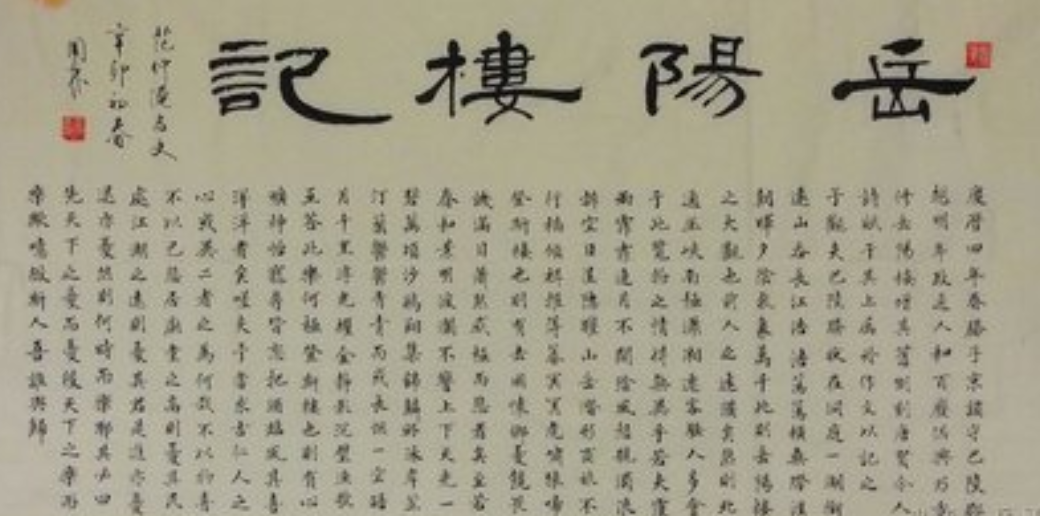 岳陽樓記
范仲淹名文
辛卯初春
慶曆四年春滕子京謫守巴陵郡
越明年政通人和百廢俱興乃重
修岳陽樓增其舊制刻唐賢今人
詩賦于其上屬予作文以記之
予觀夫巴陵勝狀在洞庭一湖銜
遠山吞長江浩浩蕩蕩橫無際涯
朝暉夕陰氣象萬千此則岳陽樓
之大觀也前人之述備矣然則北
通巫峽南極瀟湘遷客騷人多會
于此覽物之情得無異乎若夫霪
雨霏霏連月不開陰風怒號濁浪
排空日星隱耀山岳潛形商旅不
行檣傾楫摧薄暮冥冥虎嘯猿啼
登斯樓也則有去國懷鄉憂讒畏
譏滿目蕭然感極而悲者矣至若
春和景明波瀾不驚上下天光一
碧萬頃沙鷗翔集錦鱗游泳岸芷
汀蘭鬱鬱青青而或長煙一空皓
月千里浮光耀金靜影沉璧漁歌
互答此樂何極登斯樓也則有心
曠神怡寵辱皆忘把酒臨風其喜
洋洋者矣嗟夫予嘗求古仁人之
心或異二者之為何哉不以物喜
不以己悲居廟堂之高則憂其民
處江湖之遠則憂其君是進亦憂
退亦憂然則何時而樂耶其必曰
先天下之憂而憂後天下之樂而
樂歟噫微斯人吾誰與歸